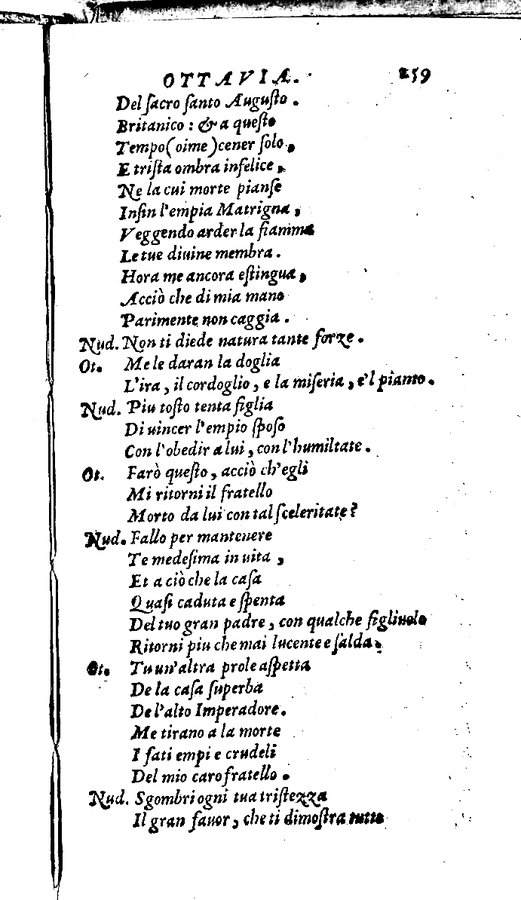 OTTAVIA. 259
Del ſacro ſanto Auguſto.
Britanico: & a queſto
Tempo (oime) cener ſolo,
E triſta ombra infelice,
Ne la cui morte pianſe
Inſin l'empia Matrigna,
Veggendo arder la fiamma
Le tue diuine membra.
Hora me ancora eſtingua,
Acciò che di mia mano
Parimente non caggia.
Nud. Non ti diede natura tante forze.
Ot. Me le daran la doglia
L'ira, il cordoglio, e la miſeria, e'l pianto.
Nud. Piu toſto tenta figlia
Di uincer l'empio ſpoſo
Con l'obedir a lui, con l'humiltate.
Ot. Farò queſto, acciò ch'egli
Mi ritorni il fratello
Morto da lui con tal ſceleritate?
Nud. Fallo per mantenere
Te medeſima in uita,
Et a ciò che la caſa
Quaſi caduta e ſpenta
Del tuo gran padre, con qualche figliuolo
Ritorni piu che mai lucente e ſalda.
Ot. Tu un'altra prole aſpetta
De la caſa ſuperba
De l'alto Imperadore.
Me tirano a la morte
I fati empi e crudeli
Del mio caro fratello.
Nud. Sgombri ogni tua triſtezza
Il gran fauor, che ti dimoſtra tutto